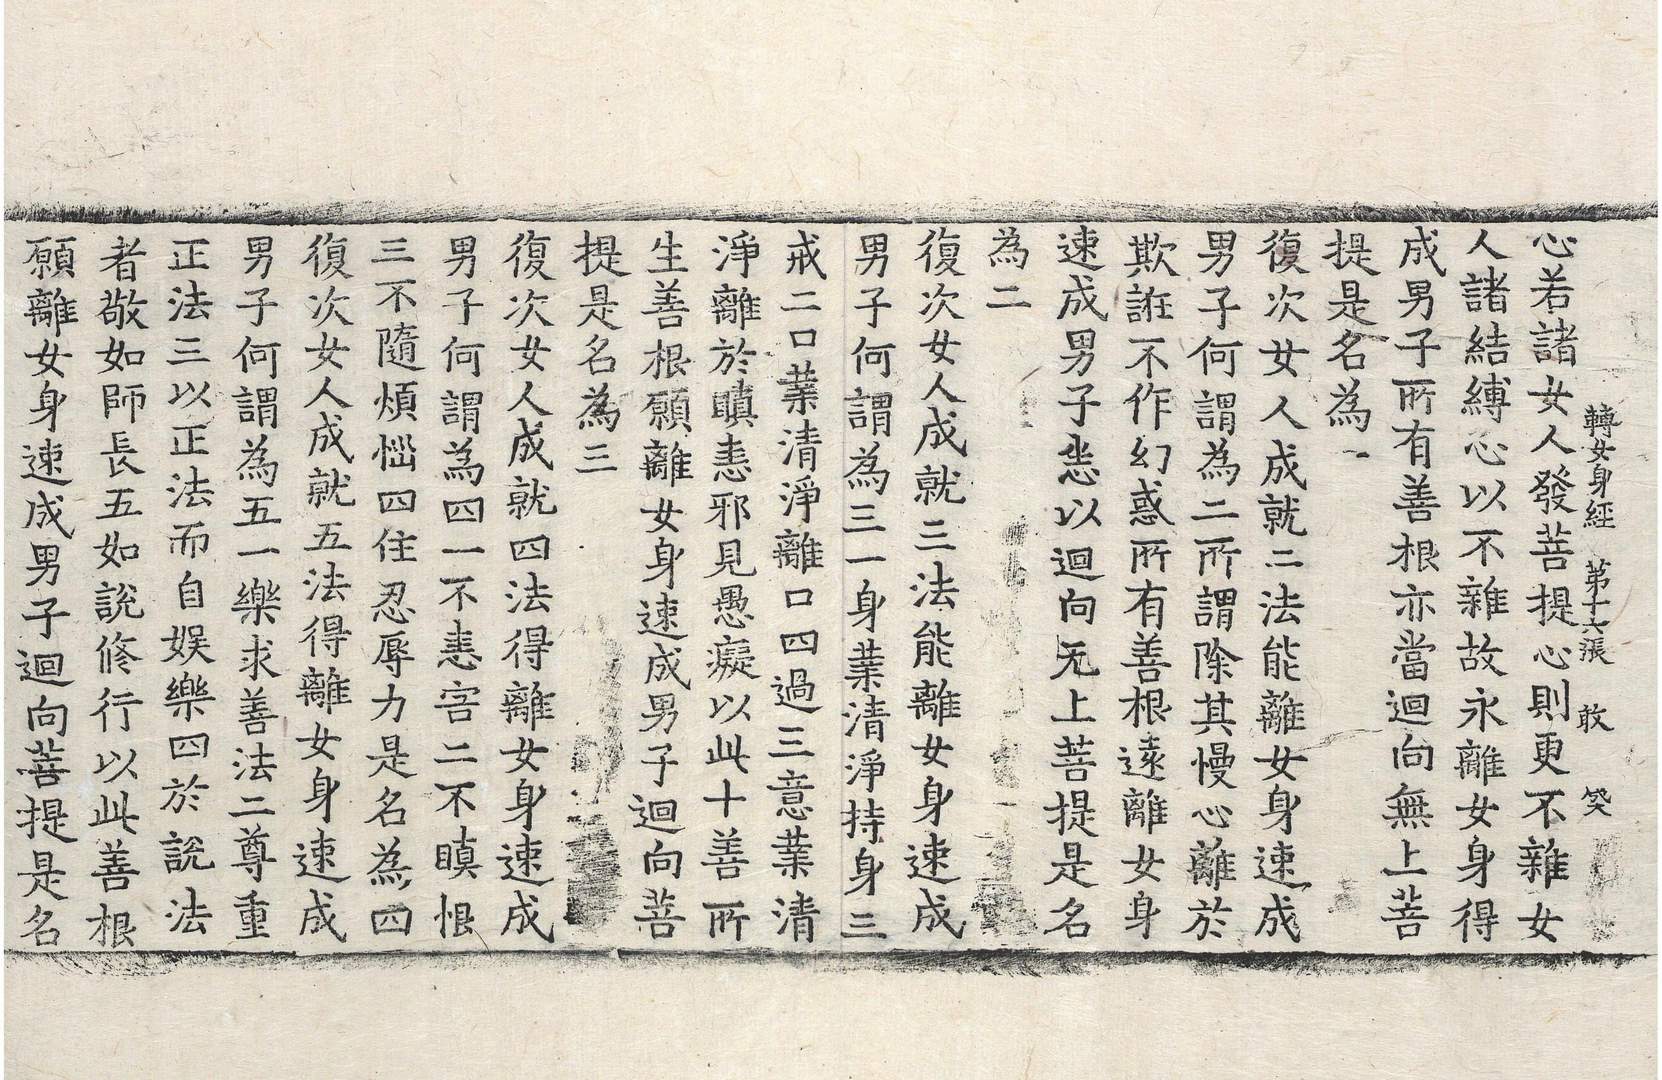 轉女身經　第十六張　敢　癸
心若諸女人發菩提心則更不雜女
人諸結縛心以不雜故永離女身得
成男子所有善根亦當迴向無上菩
提是名為一
復次女人成就二法能離女身速成
男子何謂為二所謂除其慢心離於
欺誑不作幻惑所有善根遠離女身
速成男子悉以迴向无上菩提是名
為二
復次女人成就三法能離女身速成
男子何謂為三一身業清淨持身三
戒二口業清淨離口四過三意業清
淨離於瞋恚邪見愚癡以此十善所
生善根願離女身速成男子迴向菩
提是名為三
復次女人成就四法得離女身速成
男子何謂為四一不恚害二不瞋恨
三不隨煩惱四住忍辱力是名為四
復次女人成就五法得離女身速成
男子何謂為五一樂求善法二尊重
正法三以正法而自娛樂四於說法
者敬如師長五如說修行以此善根
願離女身速成男子迴向菩提是名